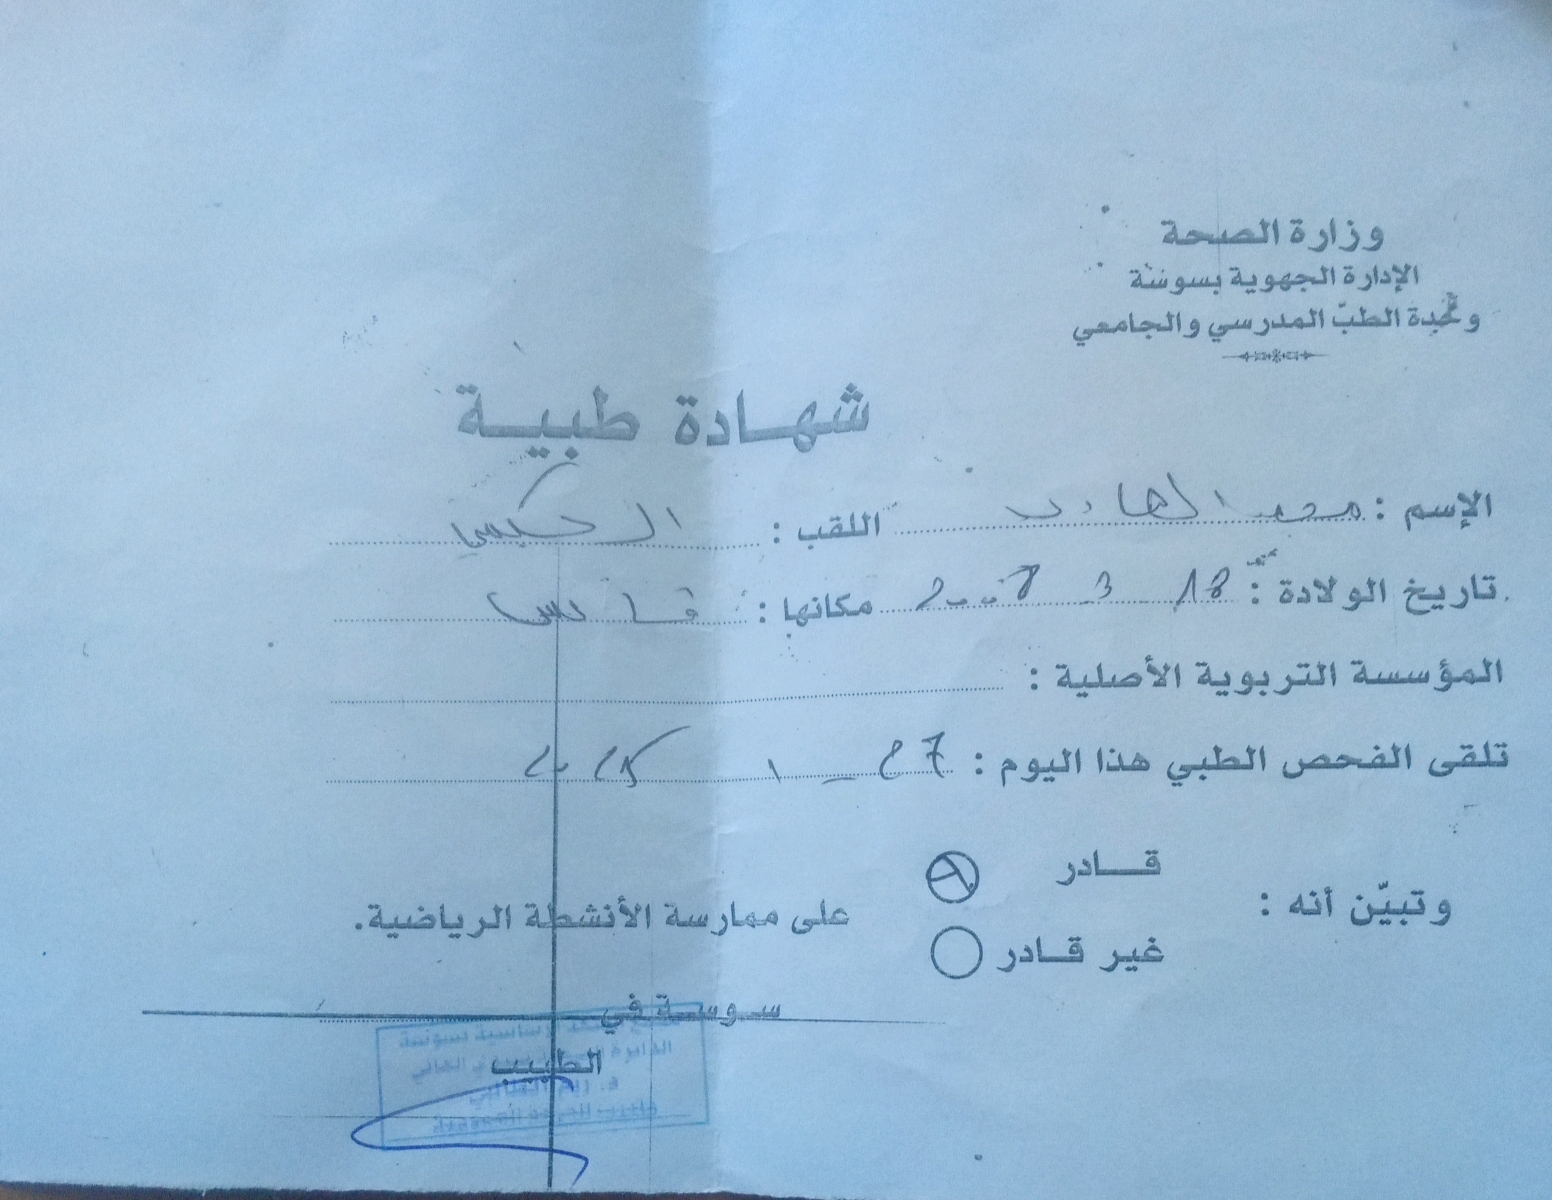 وزارة الصحة
الإدارة الجهوية بسوسة
وحدة الطبّ المدرسي والجامعي
شهادة طبية
الإسم : محمد الهادي اللقب :
تاريخ الولادة : 18 3 2007 مكانها : قابس
المؤسسة التربوية الأصلية :
تلقى الفحص الطبي هذا اليوم : 27
وتبيّن أنه :
قادر
غير قادر
على ممارسة الأنشطة الرياضية.
سوسة في
الطبيب